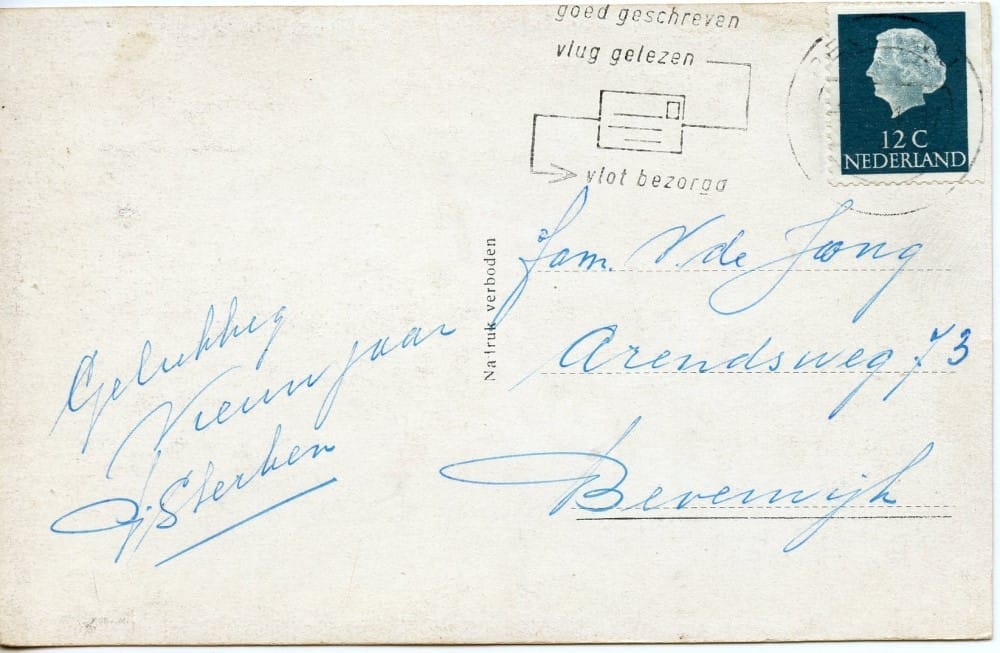 goed geschreven
vlug gelezen
vlot bezorgd
12 C
NEDERLAND
Nadruk verboden
Fam. V. de Jong
Arendsweg 73
Beverwijk
Gelukkig
Nieuwjaar